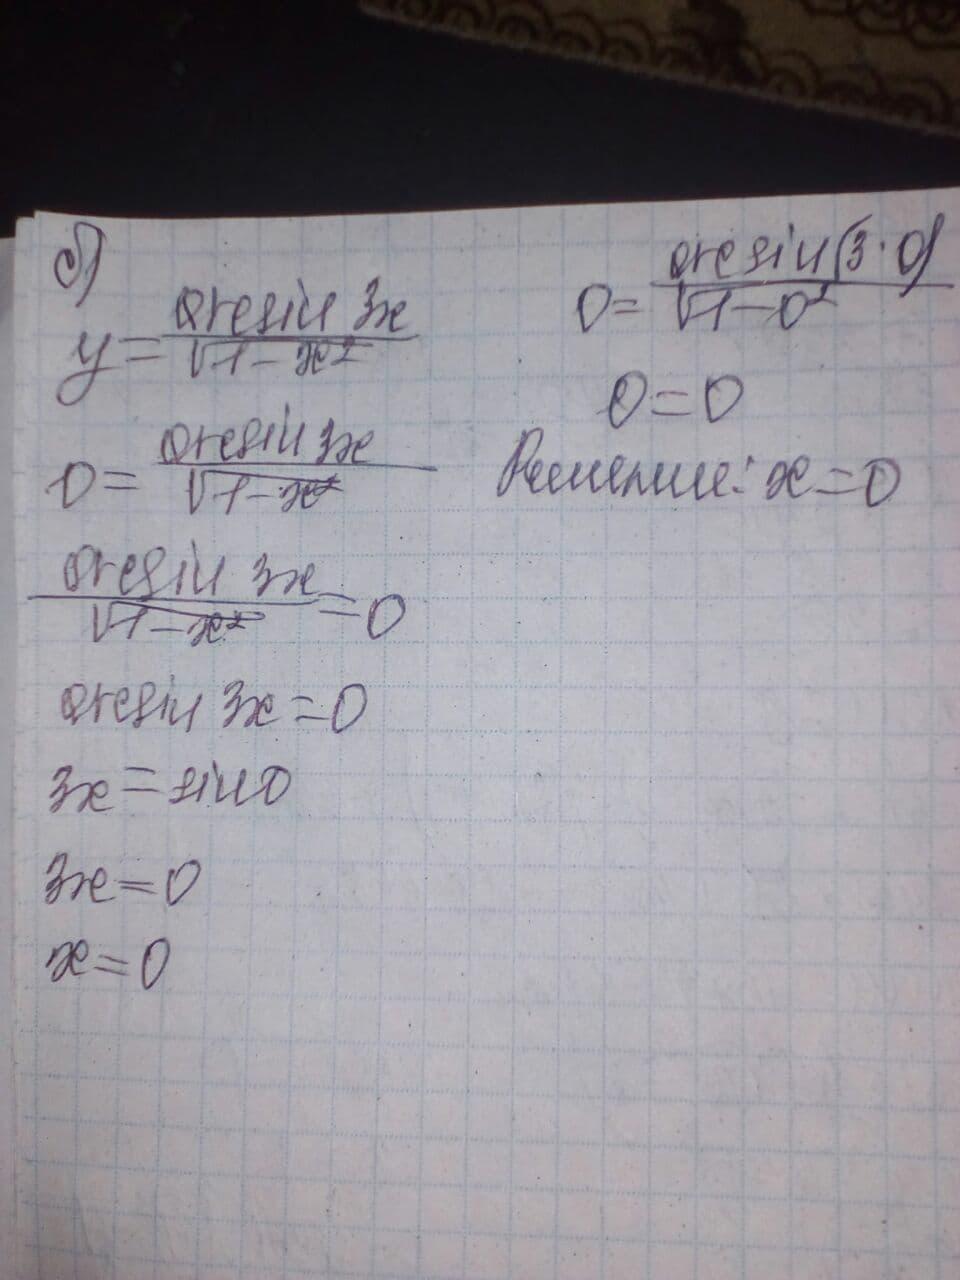 б)
y = arcsin 3x / √1-x²
0 = arcsin 3x / √1-x²
arcsin 3x / √1-x² = 0
arcsin 3x = 0
3x = sin 0
3x = 0
x = 0
0 = arcsin(3·0) / √1-0²
0 = 0
Решение: x = 0